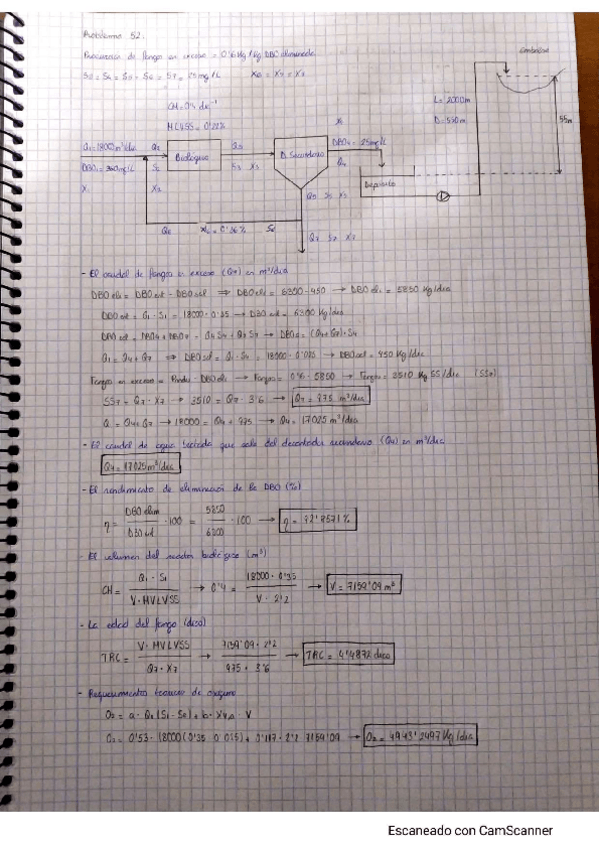 Problema 52.
Producción de fangos en exceso = 0'6 Kg / Kg DBO eliminada
S2 = S4 = S3 = S6 = S7 = 25 mg/L    X6 = X7 = X3
embalse
CM = 0'4 día⁻¹
MLVSS = 0'22%
L = 2000m
D = 550m
55m
Q1 = 18000 m³/día
Q2
Biológico
Q3
D. Secundario
DBO4 = 25 mg/L
DBO1 = 350 mg/L
S2
S3 X3
Q4
X1
X2
Depósito
Q5 S5 X5
Q6    X6 = 0'36%    S6
Q7 S7 X7
- El caudal de fangos en exceso (Q7) en m³/día
DBO eli = DBO ent - DBO sal ⇒ DBO eli = 6300 - 450 → DBO eli = 5850 Kg/día
DBO ent = Q1 · S1 = 18000 · 0'35 → DBO ent = 6300 Kg/día
DBO sal = DBO4 + DBO7 = Q4 S4 + Q7 S7 → DBOs = (Q4 + Q7) · S4
Q1 = Q4 + Q7 ⇒ DBO sal = Q1 · S4 = 18000 · 0'025 → DBO sal = 450 Kg/día
Fangos en exceso = Produ · DBO eli → Fangos = 0'6 · 5850 → Fangos = 3510 Kg SS/día (SS7)
SS7 = Q7 · X7 → 3510 = Q7 · 3'6 → Q7 = 975 m³/día
Q1 = Q4 + Q7 → 18000 = Q4 + 975 → Q4 = 17025 m³/día
- El caudal de agua tratada que sale del decantador secundario (Q4) en m³/día
Q4 = 17025 m³/día
- El rendimiento de eliminación de la DBO (%)
η = DBO elim / DBO ent · 100 = 5850 / 6300 · 100 → η = 92'8571 %
- El volumen del reactor biológico (m³)
CM = Q1 · S1 / V · MLVSS → 0'4 = 18000 · 0'35 / V · 2'2 → V = 7159'09 m³
- La edad del fango (días)
TRC = V · MLVSS / Q7 · X7 → 7159'09 · 2'2 / 975 · 3'6 → TRC = 4'4872 días
- Requerimiento teórico de oxígeno
O2 = a · Q1 (S1 - S2) + b · X · V
O2 = 0'53 · 18000 (0'35 - 0'025) + 0'117 · 2'2 · 7159'09 → O2 = 4943'2497 Kg/día
Escaneado con CamScanner